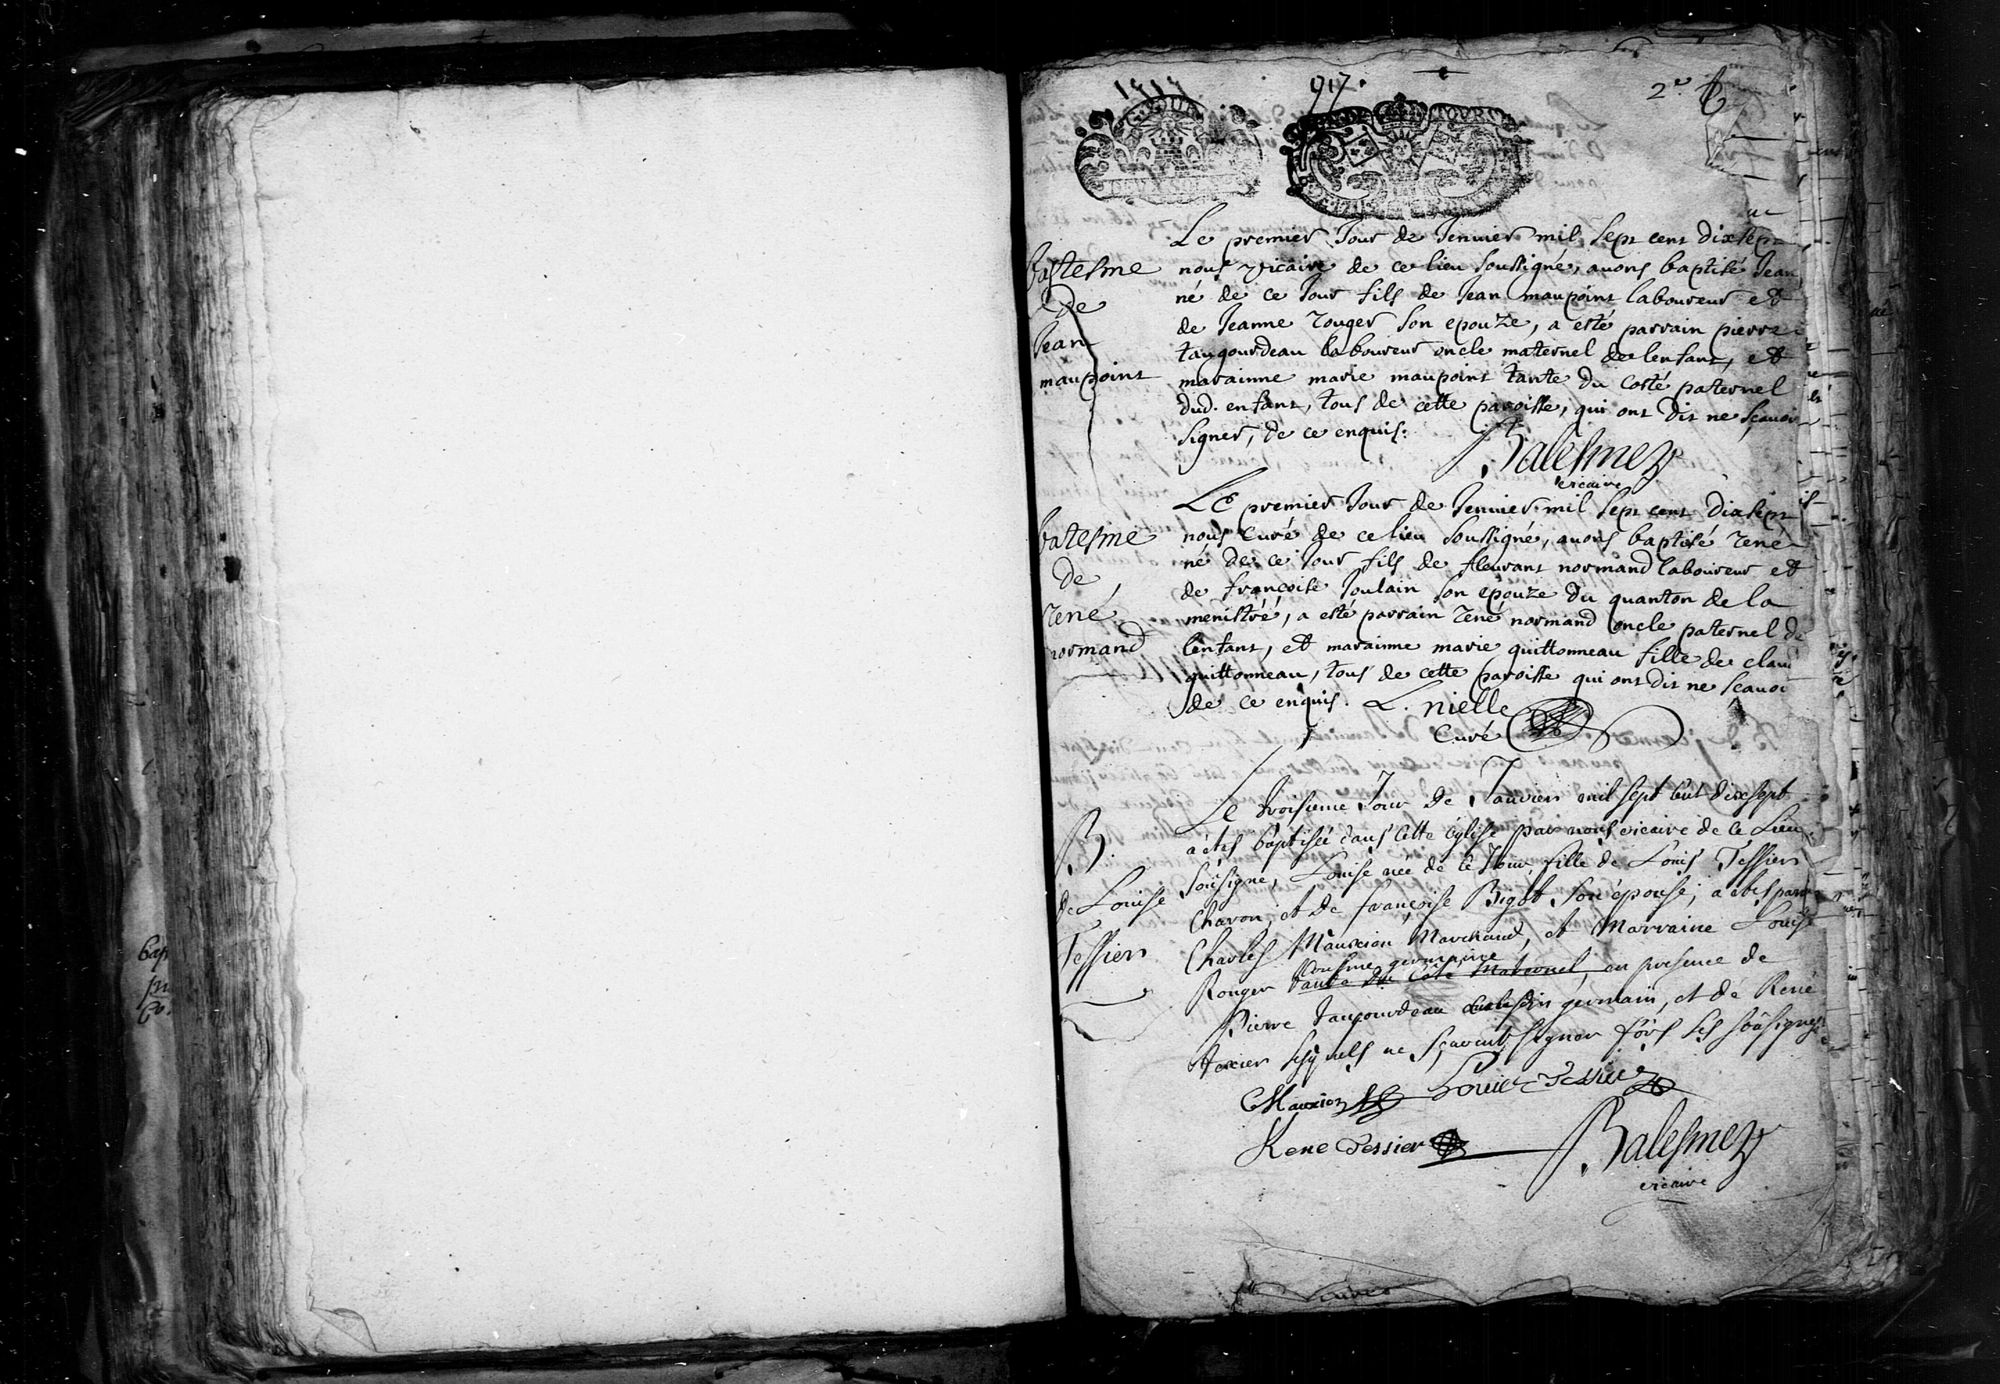 1717
917.
2e
Le premier Jour de Jenvier mil sept cent dixsept
nous vicaire de ce lieu soussigné, avons baptisé Jean
né de ce Jour fils de Jean maupoint laboureur et
de Jeanne rouger son epouze, a esté parrain pierre
taugourdeau laboureur oncle maternel de lenfant, et
marainne marie maupoint tante du costé paternel
dud. enfant, tous de cette paroisse, qui ont dit ne scavoir
signer, de ce enquis.
Balesmez
vicaire
batesme
de
Jean
maupoint
LE premier Jour de Jenvier mil sept cent dixsept
nous Curé de ce lieu soussigné, avons baptisé rené
né de ce Jour fils de fleurant normand laboureur et
de francoise Joulain son epouze du quanton de la
menistré, a esté parrain rené normand oncle paternel de
lenfant, et marainne marie quittonneau fille de clau
quittonneau, tous de cette paroisse qui ont dit ne scavoi
de ce enquis. L. nielle
Curé
batesme
de
rené
normand
Le troisieme Jour de Janvier mil sept cent dixsept
a etes baptisée dans cette église par nous vicaire de ce Lieu
sousigne, Louise née de ce Jour fille de Louis Tessier
Charon, et de françoise Bigot son épouse; a etes parr
Charles Mauxion Marchand, et Marraine Louise
Cousine germaine
Rouger tante du Côté Maternel, en presence de
Pierre Taugourdeau cousin germain, et de René
texier lesquels ne scavent signer fors les soûsignes
Mauxion Louis Tessier
Rene Tessier Balesmez
vicaire
B.
de Louise
Tessier